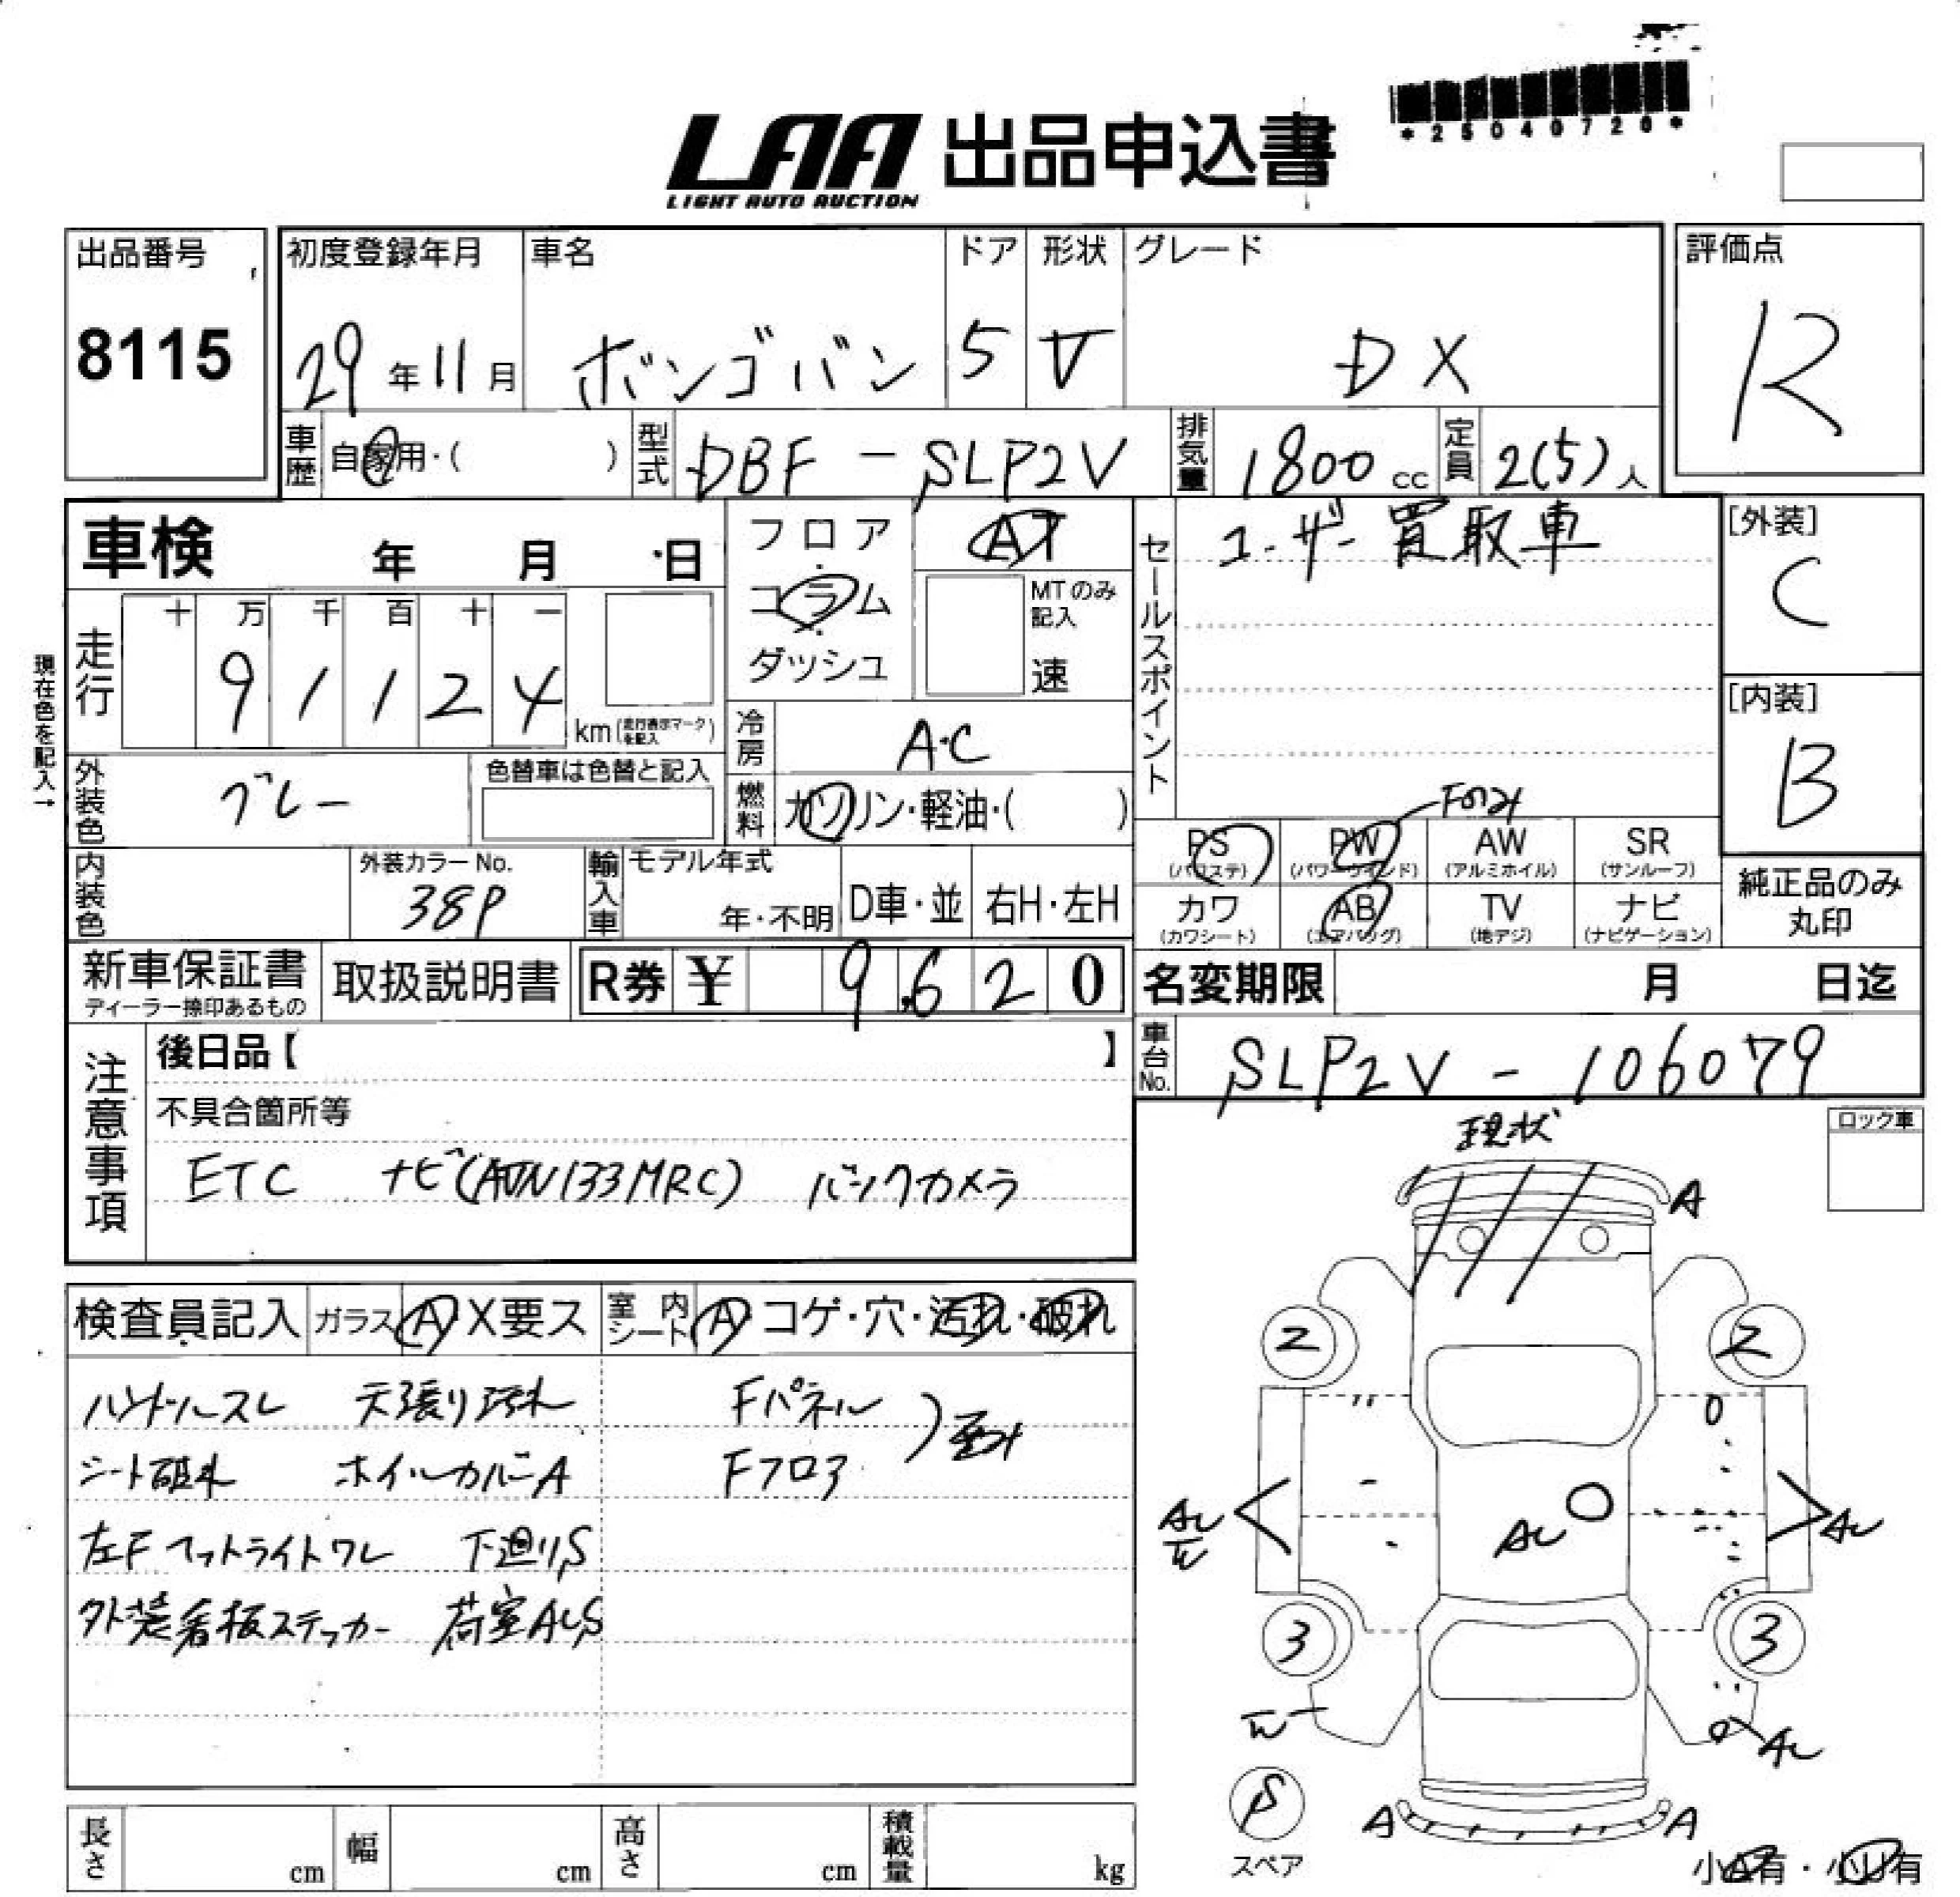 *25040720*
LAA 出品申込書
LIGHT AUTO AUCTION
出品番号
8115
初度登録年月
29年11月
車名
ボンゴバン
ドア
5
形状
V
グレード
DX
評価点
R
車歴 自家用・( )
型式 DBF-SLP2V
排気量 1800 cc
定員 2(5)人
車検 年 月 日
フロア・コラム・ダッシュ
AT
MTのみ記入
速
セールスポイント
ユーザー買取車
[外装]
C
[内装]
B
現在色を記入→
走行
十 万 千 百 十 一
9 1 1 2 4
km(走行表示マークを記入)
冷房 A・C
燃料 ガソリン・軽油・( )
外装色 グレー
色替車は色替と記入
Fのみ
PS PW AW SR
(パワステ) (パワーウインド) (アルミホイル) (サンルーフ)
カワ AB TV ナビ
(カワシート) (エアバッグ) (地デジ) (ナビゲーション)
純正品のみ
丸印
内装色
外装カラーNo.
38P
輸入車 モデル年式
年・不明 D車・並 右H・左H
新車保証書
ディーラー捺印あるもの
取扱説明書
R券 ¥ 9,620
名変期限 月 日迄
車台No. SLP2V-106079
注意事項
後日品【 】
不具合箇所等
ETC ナビ(AVN133MRC) バックカメラ
現状
ロック車
検査員記入 ガラス A・X要ス 室内シート A・コゲ・穴・汚れ・破れ
ハンドルスレ 天張り汚れ Fパネル
シート破れ ホイルカバーA Fフロア
歪み
左Fフットライトワレ 下廻りS
外装看板ステッカー 荷室AUS
A
2 2
AU AU AU
3 3
AU
S
スペア
A A
小A有・小U有
長さ cm 幅 cm 高さ cm 積載量 kg